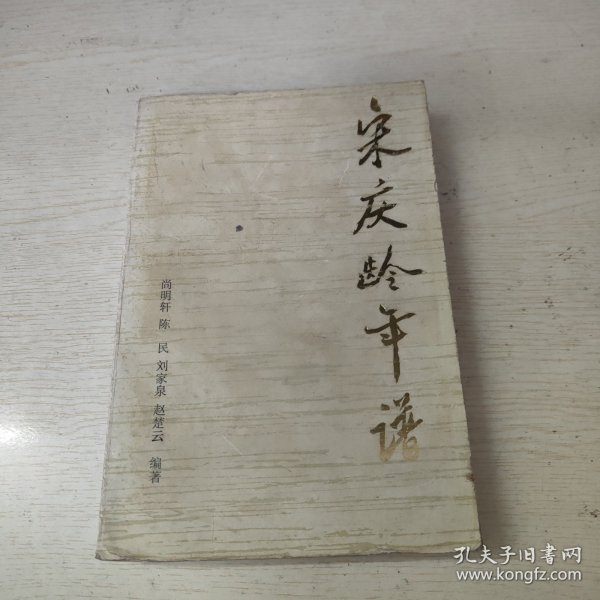 宋庆龄年谱
尚明轩 陈民 刘家泉 赵楚云 编著
孔夫子旧书网
www.kongfz.com